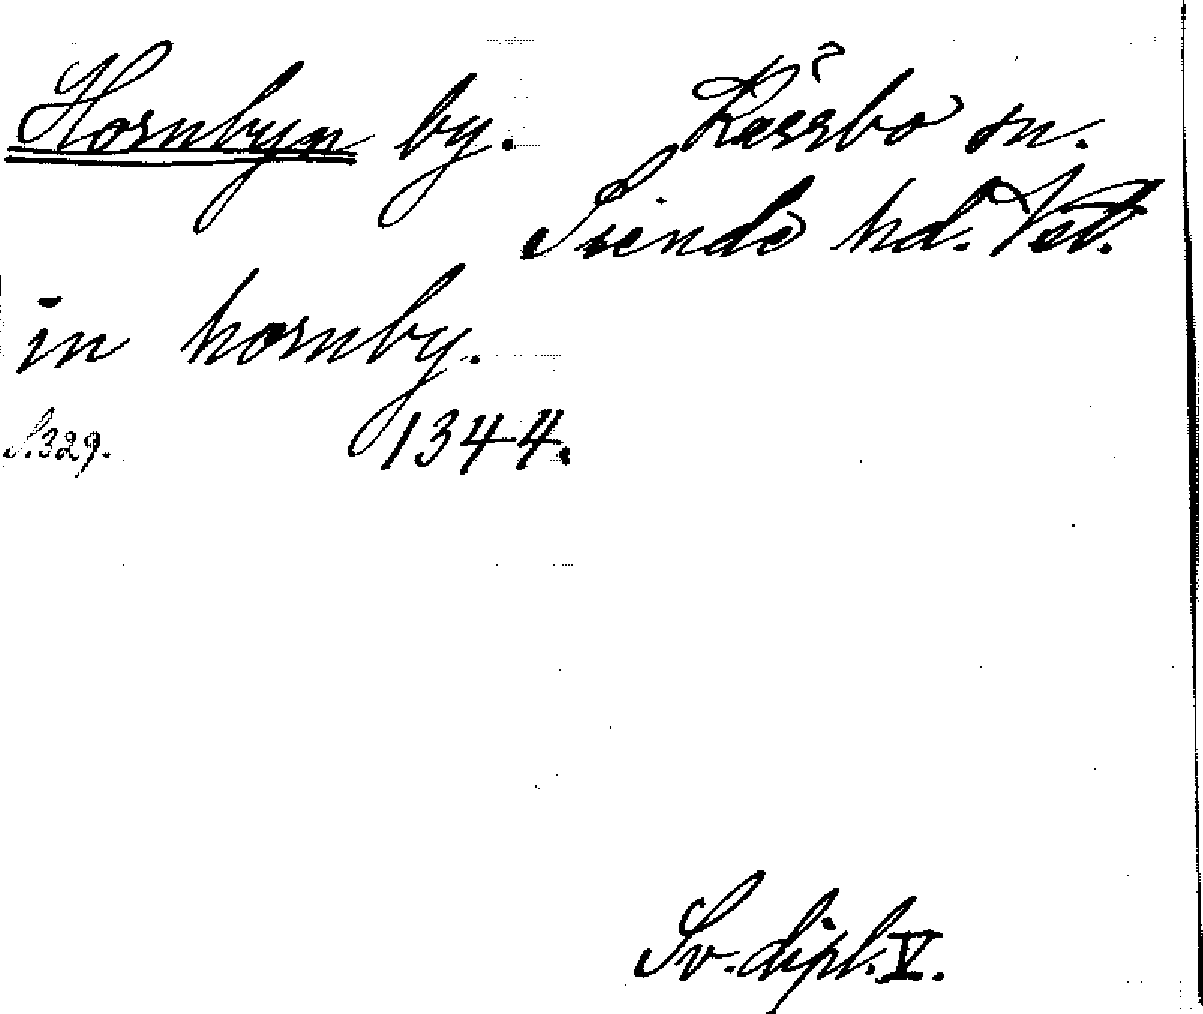 Hornbyn by. Kärrbo sn.
Siende hd.
in hornby.
S. 329. 1344.
Sv. dipl. V.